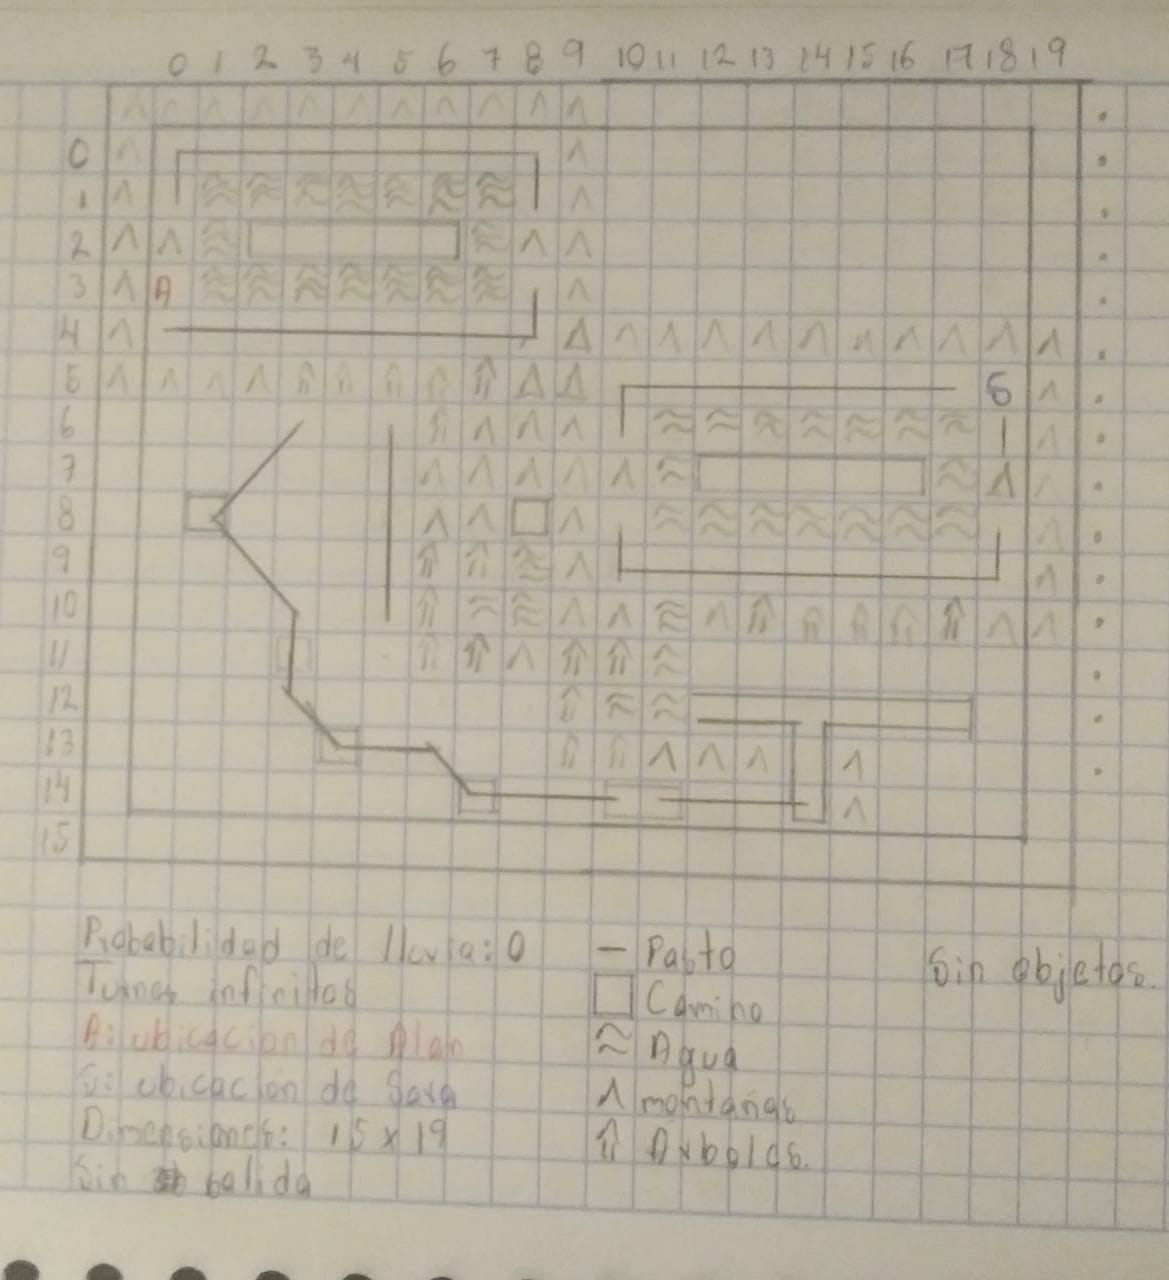 0 1 2 3 4 5 6 7 8 9 10 11 12 13 14 15 16 17 18 19
0
1
2
3 A
4
5 S
6
7
8
9
10
11
12
13
14
15
Probabilidad de lluvia: 0
Turnos infinitos
A: ubicacion de Alan
S: ubicacion de Sara
Dimensiones: 15 x 19
Sin salida
Pasto
Camino
Agua
montañas
Arboles.
Sin objetos.